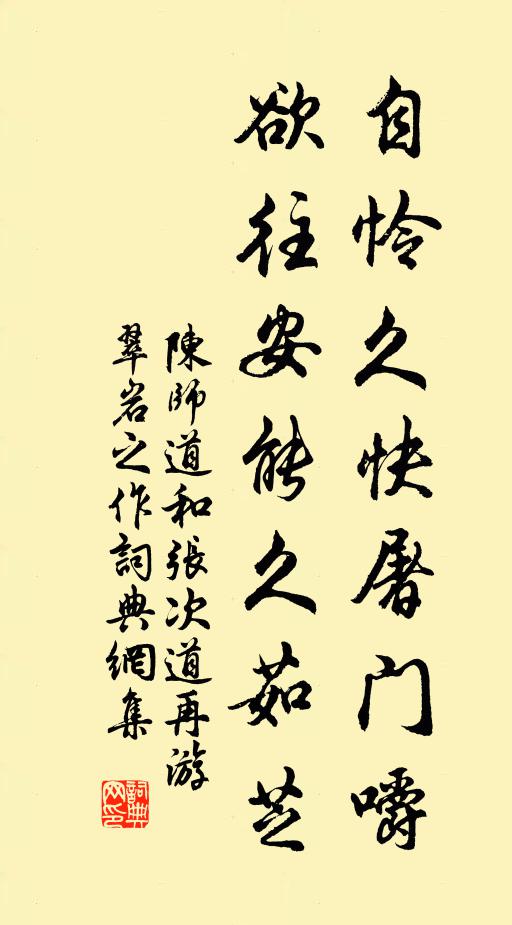 自怜久快屠门嚼
欲往安能久茹芝
陳師道和張次道再游
翠岩之作詞典網集
詞典
网印